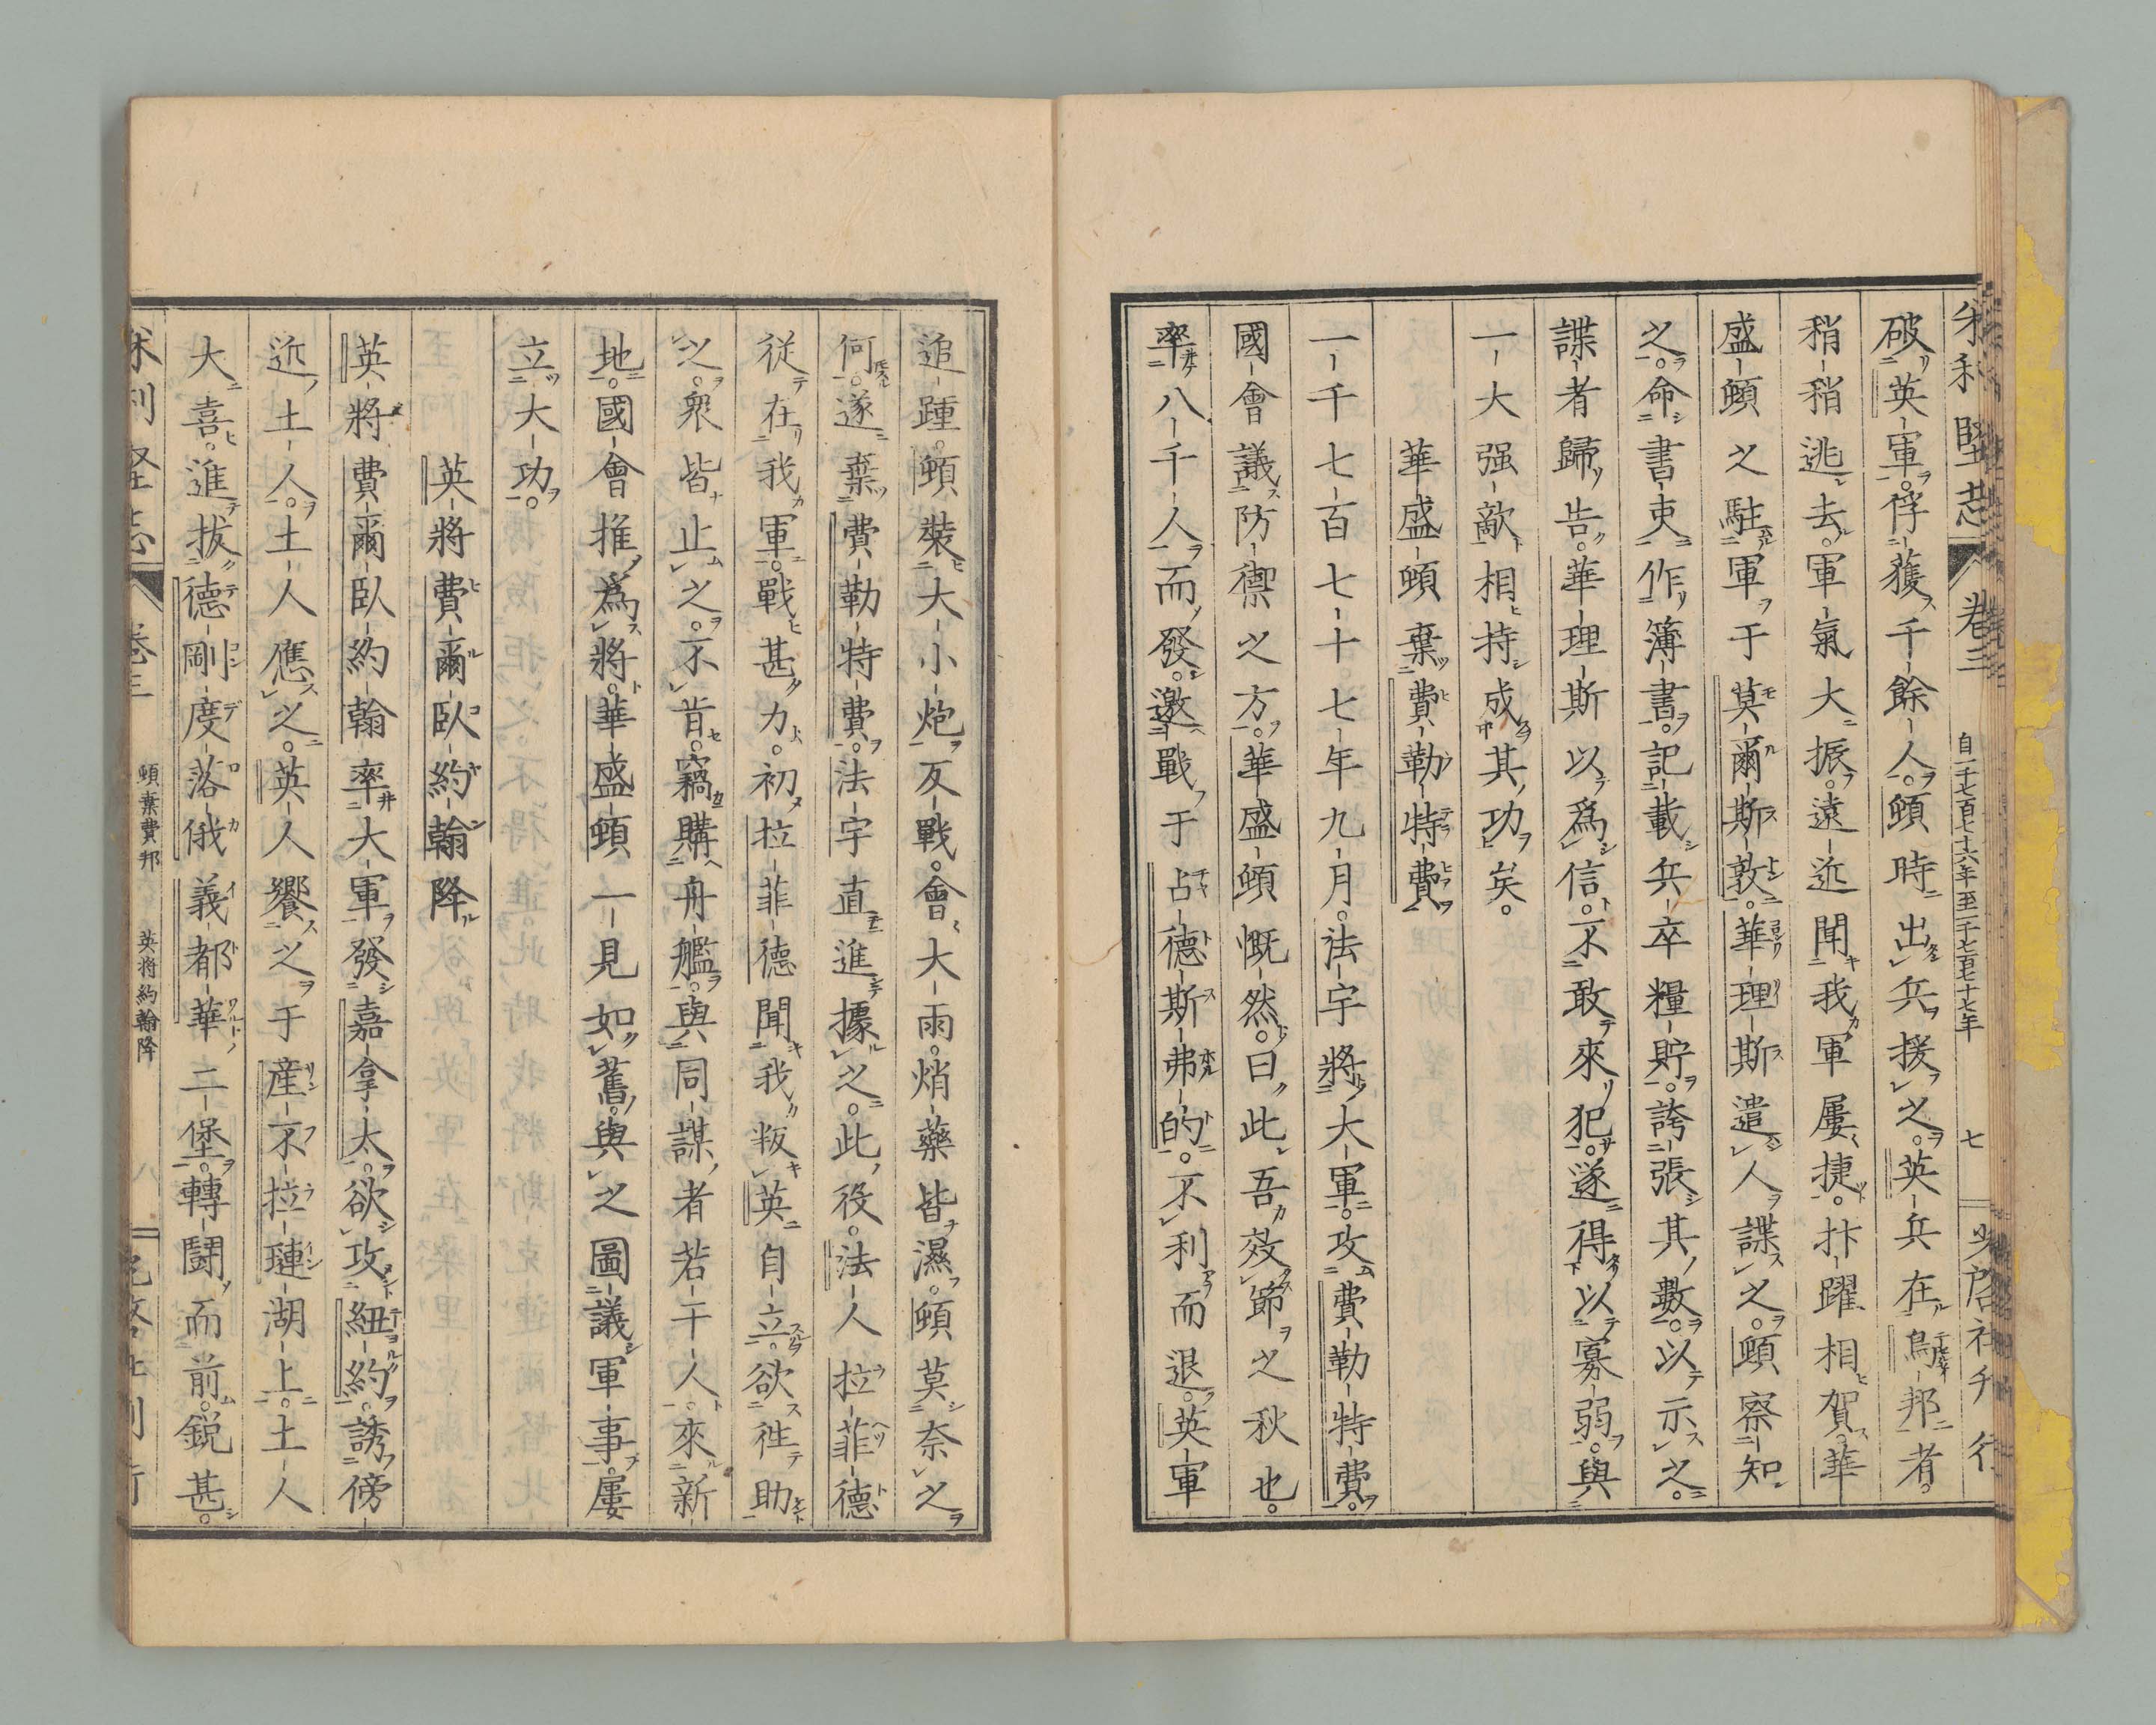 米利堅志 卷三 自一千七百七十六年至一千七百七十七年 七 光啓社刊行
破英軍。俘獲千餘人。頓時出兵援之。英兵在鳥邦者。
稍稍逃去。軍氣大振。遠近聞我軍屢捷。抃躍相賀。華
盛頓之駐軍于莫爾斯敦。華理斯遣人諜之。頓察知
之。命書吏作簿書。記載兵卒糧貯。誇張其數。以示之。
諜者歸告。華理斯以爲信。不敢來犯。遂得以寡弱。與
一大强敵相持成其功矣。
華盛頓棄費勒特費
一千七百七十七年九月。法宇將大軍。攻費勒特費。
國會議防禦之方。華盛頓慨然。曰此吾效節之秋也。
率八千人而發。邀戰于占德斯弗的。不利而退。英軍
追踵。頓裝大小炮反戰。會大雨。焇藥皆濕。頓莫奈之
何。遂棄費勒特費。法宇直進據之。此役。法人拉菲德
從在我軍。戰甚力。初拉菲德聞我叛英自立。欲徃助
之。衆皆止之。不肯。竊購舟艦。與同謀者若干人。來新
地。國會推爲將。華盛頓一見如舊。與之圖議軍事。屢
立大功。
英將費爾臥約翰降
英將費爾臥約翰率大軍發嘉拿太。欲攻紐約。誘傍
近土人。土人應之。英人饗之于産不拉璉湖上。土人
大喜。進拔德剛度落俄義都華二堡。轉鬪而前。鋭甚。
米利堅志 卷三 頓棄費邦 英将約翰降 八 光啓社刊行